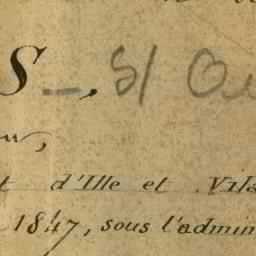 S_, S/ Ou
t d'Ille et Vil
1847, sous l'admin